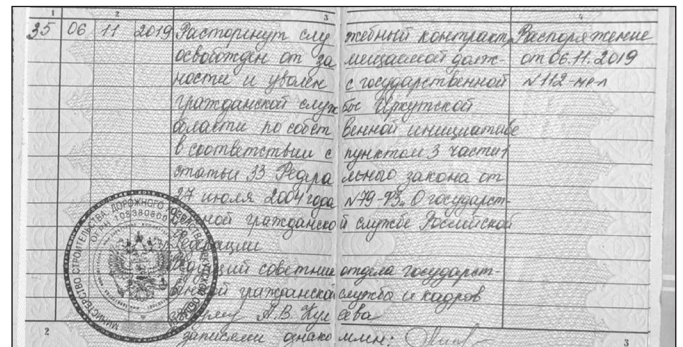 1 2 3 4
35 06 11 2019 Расторгнут служебный контракт, Распоряжение
освобожден от замещаемой долж- от 06.11.2019
ности и уволен с государственной №112-мр-л
гражданской службы Иркутской
области по собственной инициативе
в соответствии с пунктом 3 части 1
статьи 33 Федерального закона от
27 июля 2004 года №79-ФЗ „О государст-
венной гражданской службе Российской
Федерации
Ведущий советник отдела государст-
венной гражданской службы и кадров
А.В.
записями ознакомлен:
2 3
МИНИСТЕРСТВО СТРОИТЕЛЬСТВА, ДОРОЖНОГО